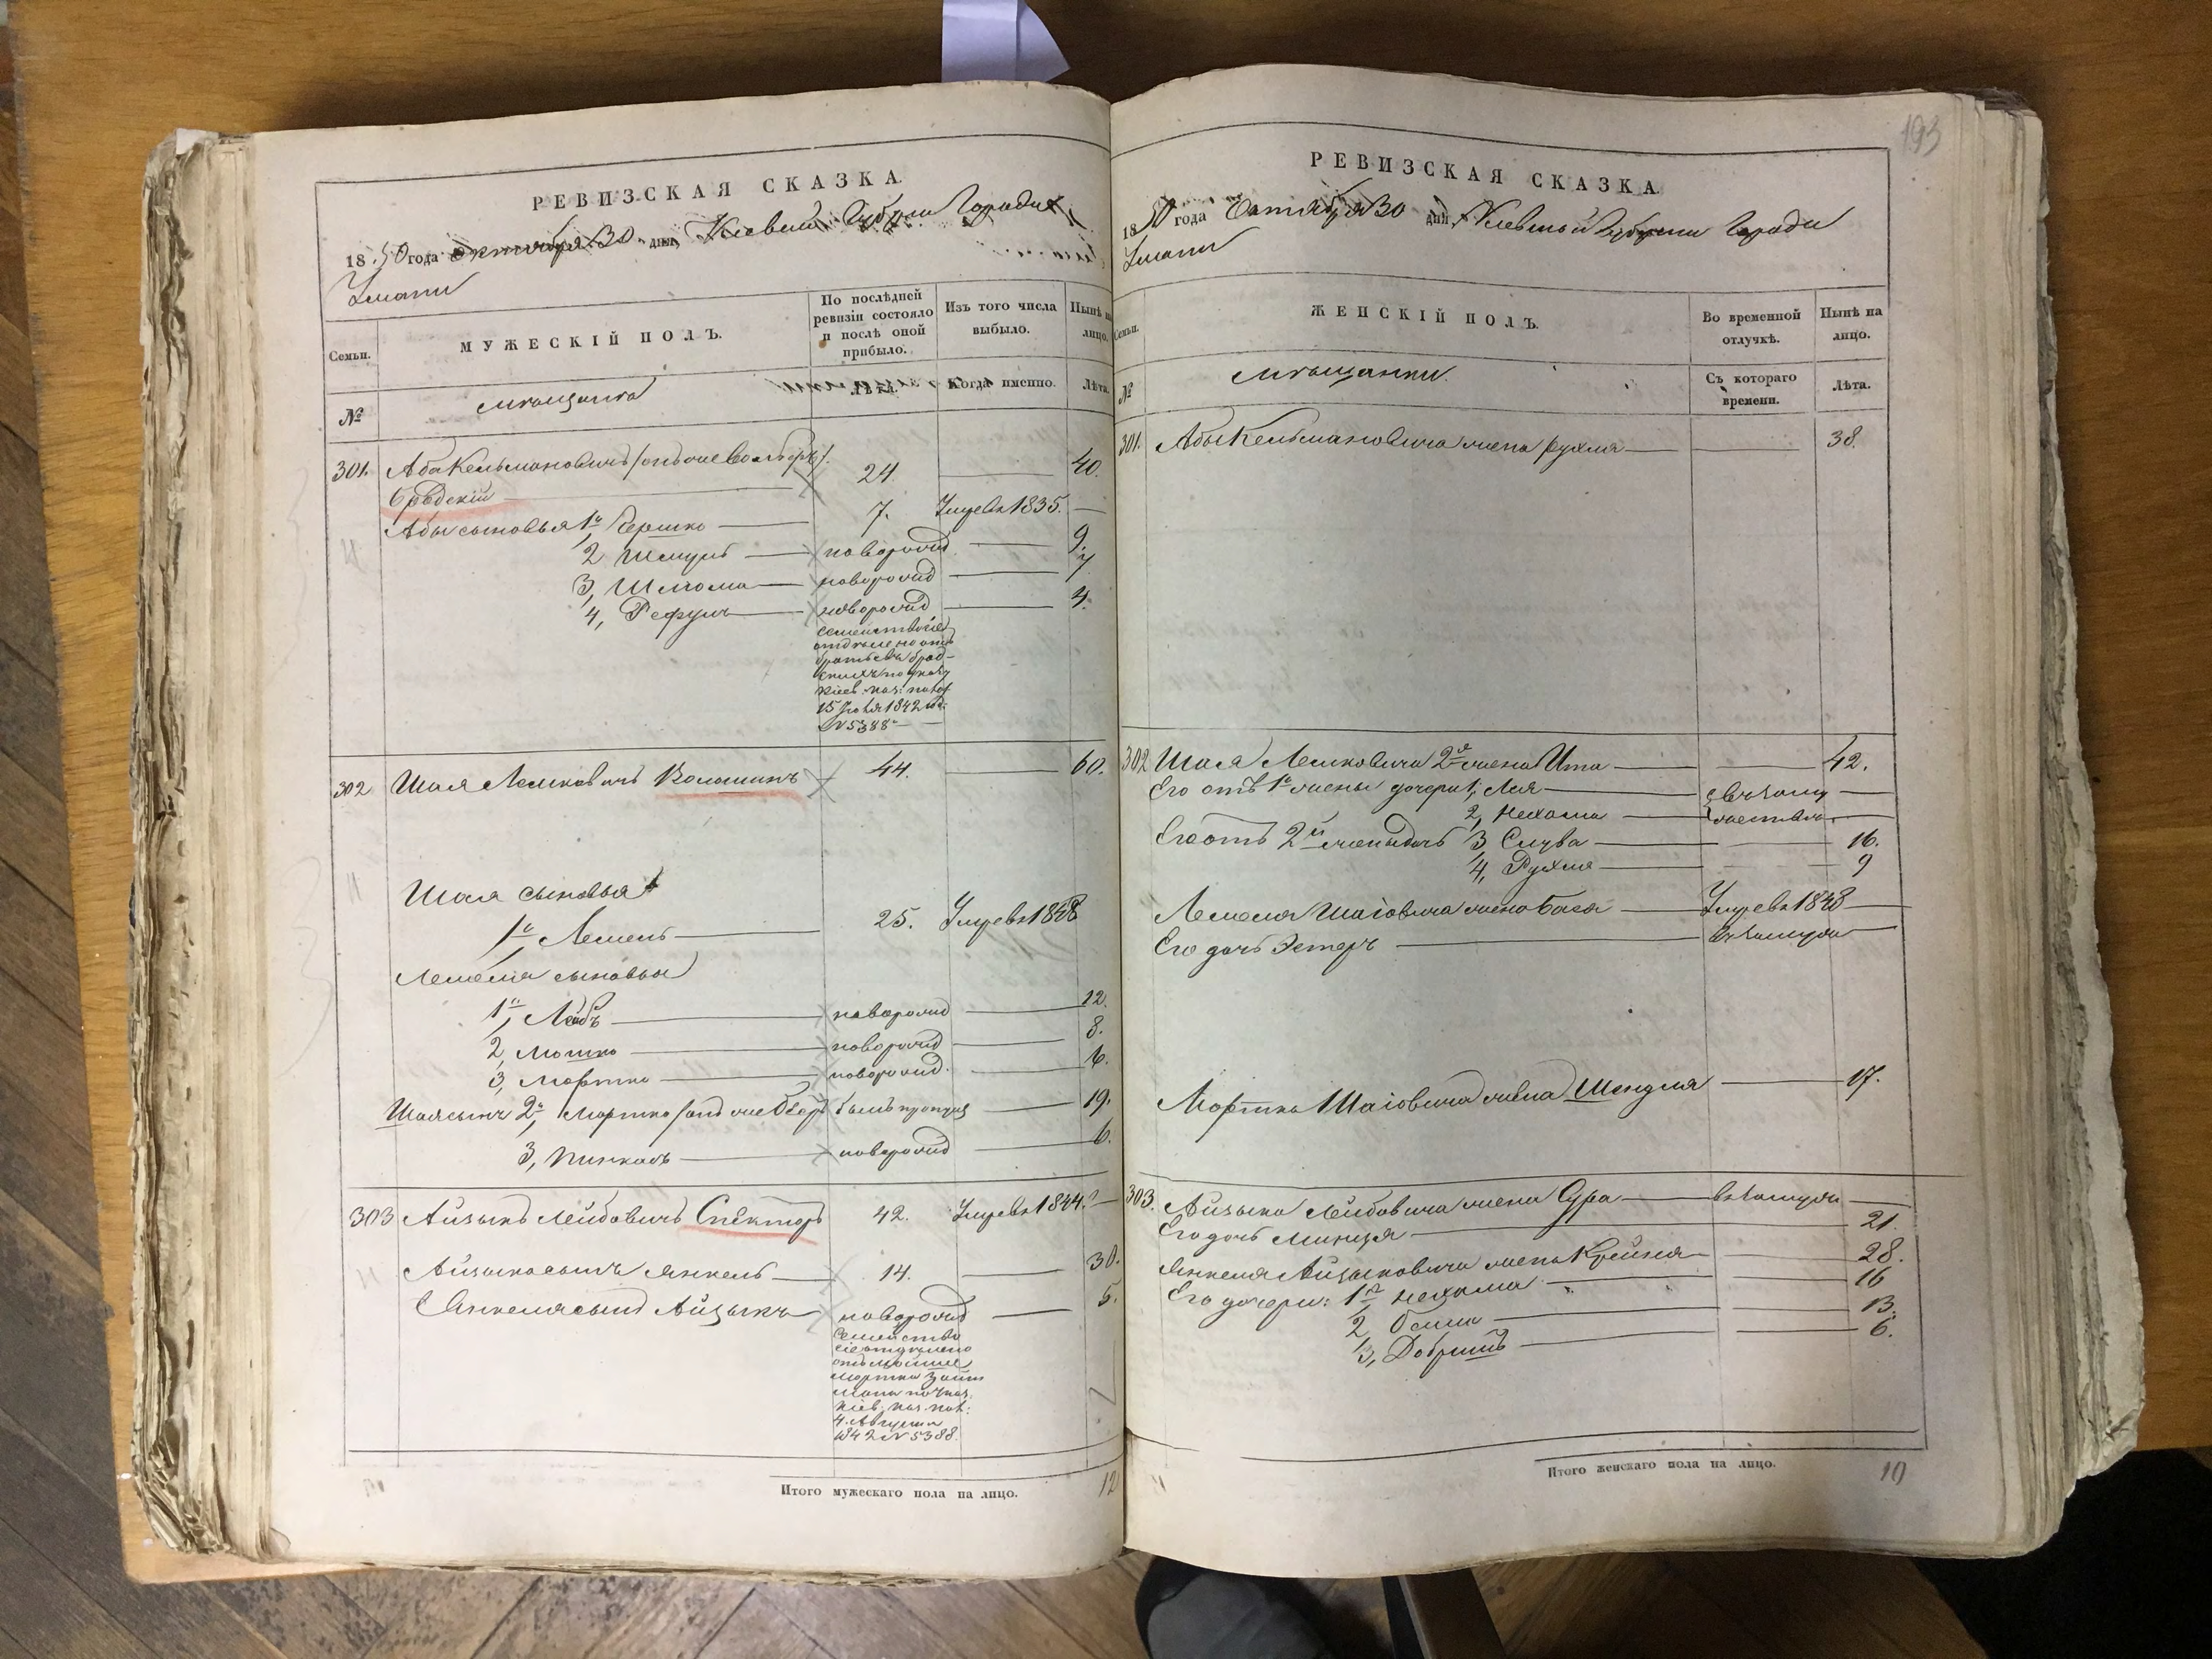 РЕВИЗСКАЯ СКАЗКА.
1850 года Октября 30 дня Киевской Губернии Города
Умани
Семьи.
МУЖЕСКІЙ ПОЛЪ.
По послѣдней ревизіи состояло и послѣ оной прибыло.
Изъ того числа выбыло.
Нынѣ на лицо.
№
Мѣщане
Лѣта.
Когда именно.
Лѣта.
301. Аба Кельмановичъ 24 40.
Бродскій
Абы сыновья 1й Гершко 7. Умре въ 1835.
2, Шмуль новорожд 9.
3, Шлома новорожд 7
4, Рефулъ новорожд 4.
Семейство сіе
отдѣлено отъ
братьевъ Брод-
скихъ по указу
Кіев. каз. палат.
15 1842 год.
N 5388
302 Шая Лемковичъ Волошинъ 44. 60.
Шая сыновья
1й, Лемель 25. Умре въ 1848
Лемеля сыновья
1й, Лейбъ новорожд 12.
2, Мошко новорожд 8.
3, Мортко новорожд. 6.
Шая сынъ 2й, Мортко былъ пропущ 19.
3, Пинкасъ новорожд 6.
303 Айзыкъ Лейбовичъ Спекторъ 42. Умре въ 1844.
Айзыка сынъ Янкель 14. 30.
Янкеля сынъ Айзыкъ новорожд 5.
Семейство
сіе отделено
отъ
Мортка
по указ.
Кіев. каз. пал:
4. Августа
1842 N 5388.
Итого мужескаго пола на лицо. 12
193
РЕВИЗСКАЯ СКАЗКА.
1850 года Октября 30 дня Киевской Губернии Города
Умани
Семьи.
ЖЕНСКІЙ ПОЛЪ.
Во временной отлучкѣ.
Нынѣ на лицо.
№
Мѣщанки.
Съ котораго времени.
Лѣта.
301. Абы Кельмановича жена Рухля 38.
302 Шая Лемковича 2я жена Ита 42.
Его отъ 1й жены дочери 1, Лея въ замуж
2, Нехама
Его отъ 2й жены дочь 3 Слува 16.
4, Рухля 9
Лемеля Шаіовича жена Бася Умре въ 1848
Его дочь Эстеръ въ замуж
Мортка Шаіовича жена Шендля 17.
303. Айзыка Лейбовича жена Сура въ замуж
Его дочь Минця 21.
Янкеля Айзыковича жена Крейня 28.
Его дочери: 1я Нехама 16
2, 13.
3, Добришъ 6.
Итого женскаго пола на лицо. 10